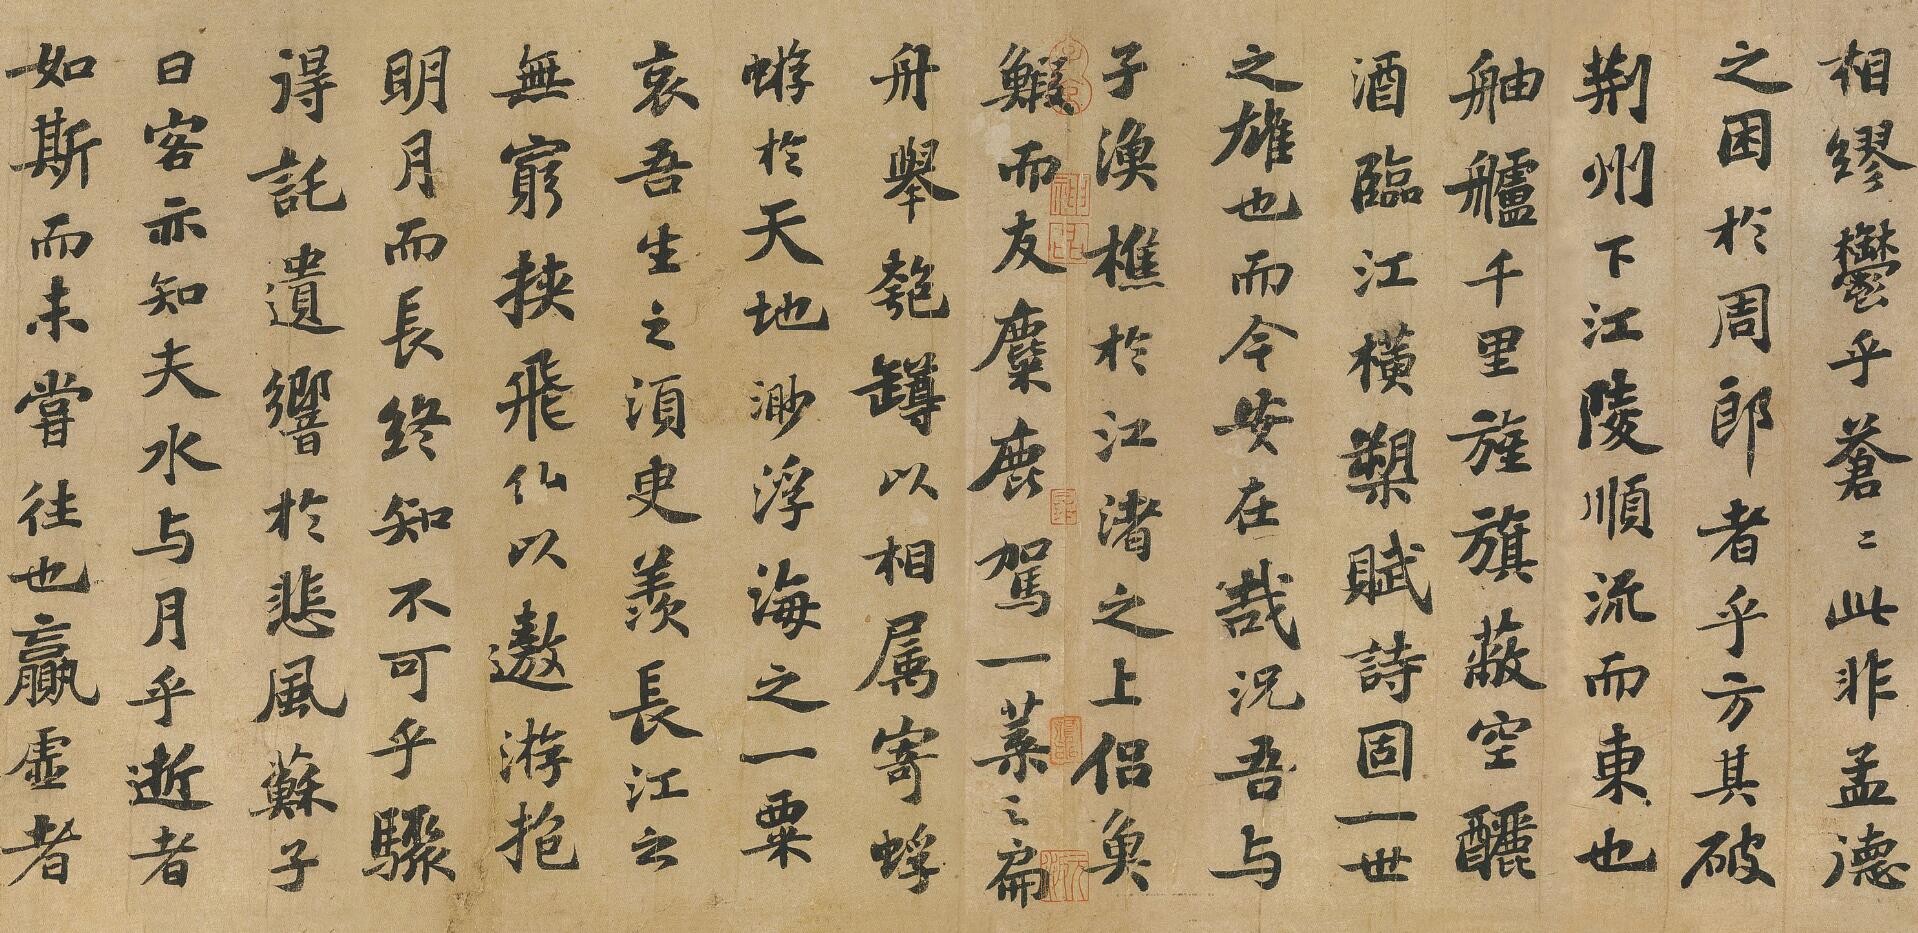 相繆鬱乎蒼〻此非孟德
之困於周郎者乎方其破
荆州下江陵順流而東也
舳艫千里旌旗蔽空釃
酒臨江橫槊賦詩固一世
之雄也而今安在哉況吾与
子漁樵於江渚之上侶魚
鰕而友麋鹿駕一葉之扁
舟舉匏罇以相属寄蜉
蝣於天地渺浮海之一粟
哀吾生之須臾羨長江之
無窮挾飛仙以遨游抱
明月而長終知不可乎驟
得託遺響於悲風蘇子
曰客亦知夫水与月乎逝者
如斯而未嘗往也贏虛者